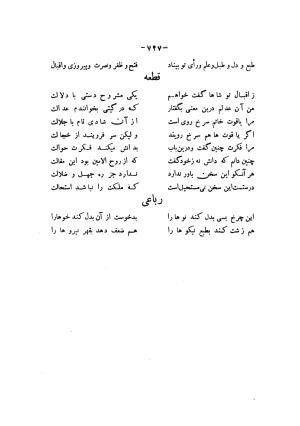 -۷۲۷-
طبع و دل و طبل و علم و رأی تو بیناد فتح و ظفر و نصرت و پیروزی و اقبال
قطعه
ز اقبال تو شاها گفت خواهم یکی مشروح دستی با دلالت
من آن عدلم درین معنی بگفتار که در گیتی بخوانندم عدالت
مرا یاقوت خاتم سرخ روی از آن شادی نام با جلالت
اگر یاقوت ها هم سرخ رویند و لیکن سر فرویند از خجالت
مرا فکرت چنین گفت و درین باب بدانش میکند فکرت حوالت
چنین دانم که دانش نه زخود گفت که از روح الامین بود این مقالت
هر آنکو این سخن باور ندارد ندارد جز ره جهل و ضلالت
درست است این سخن نی مستحیل است که ملکت را نباشد استحالت
رباعی
این چرخ بسی بدل کند نو ها را بدخوست از آن بدل کند خوها را
هم زشت کند بطبع نیکو ها را هم ضعف دهد بقهر نیرو ها را